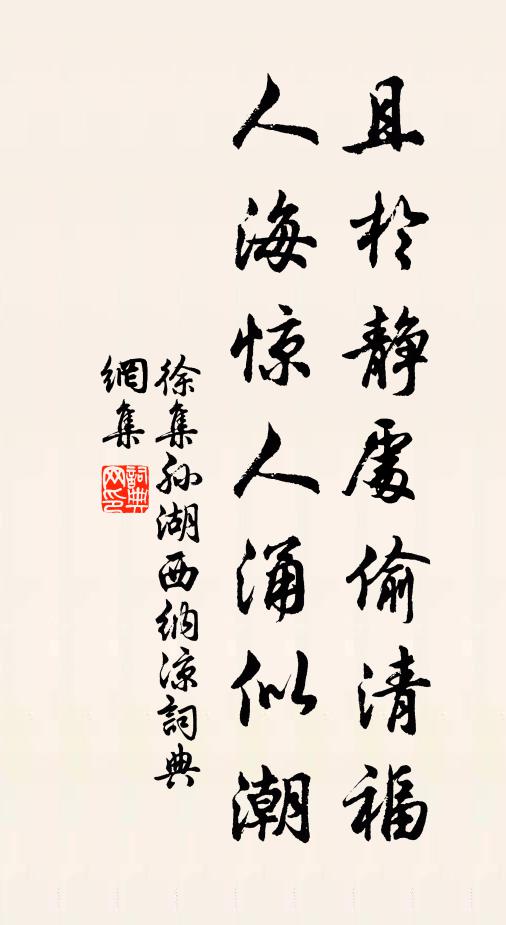 且於静處偷清福
人海惊人涌似潮
徐集孙湖西纳凉詞典
網集
詞典网印